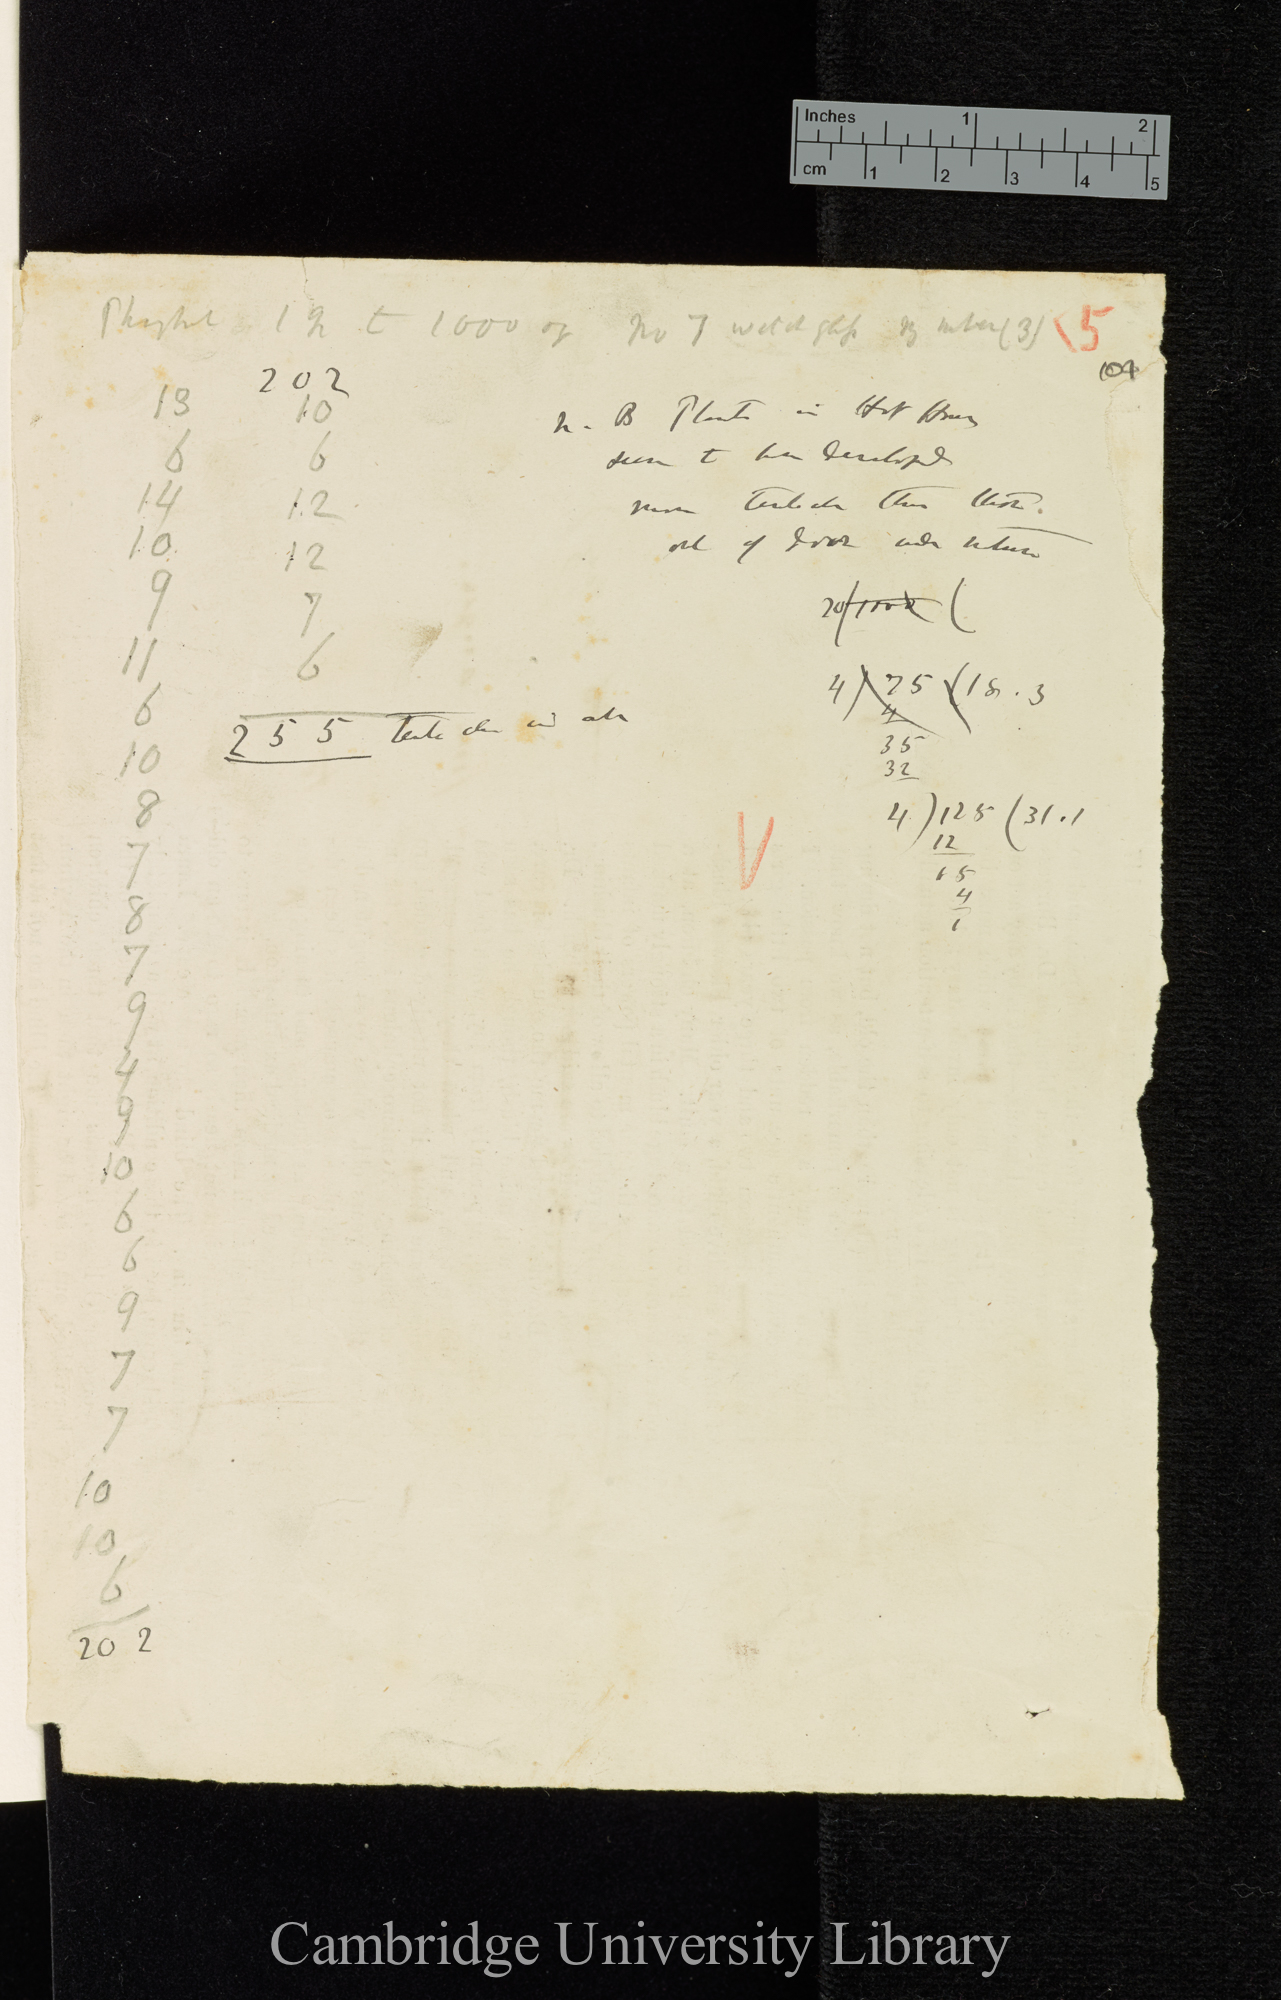 Inches 1 2
cm 1 2 3 4 5
1 gr to 1000 of No 7 watch glass number (3) 5
104
13
6
14
10
9
11
6
10
8
7
8
7
9
4
9
10
6
6
9
7
7
10
10
6
202
202
10
6
12
12
7
6
255 tentacles in all
N. B Plants in Hot House
seem to have developed
more tentacles than those
out of doors under nature
20)1000(
4)75(18.3
4
35
32
4)125(31.1
12
05
4
1
V
Cambridge University Library